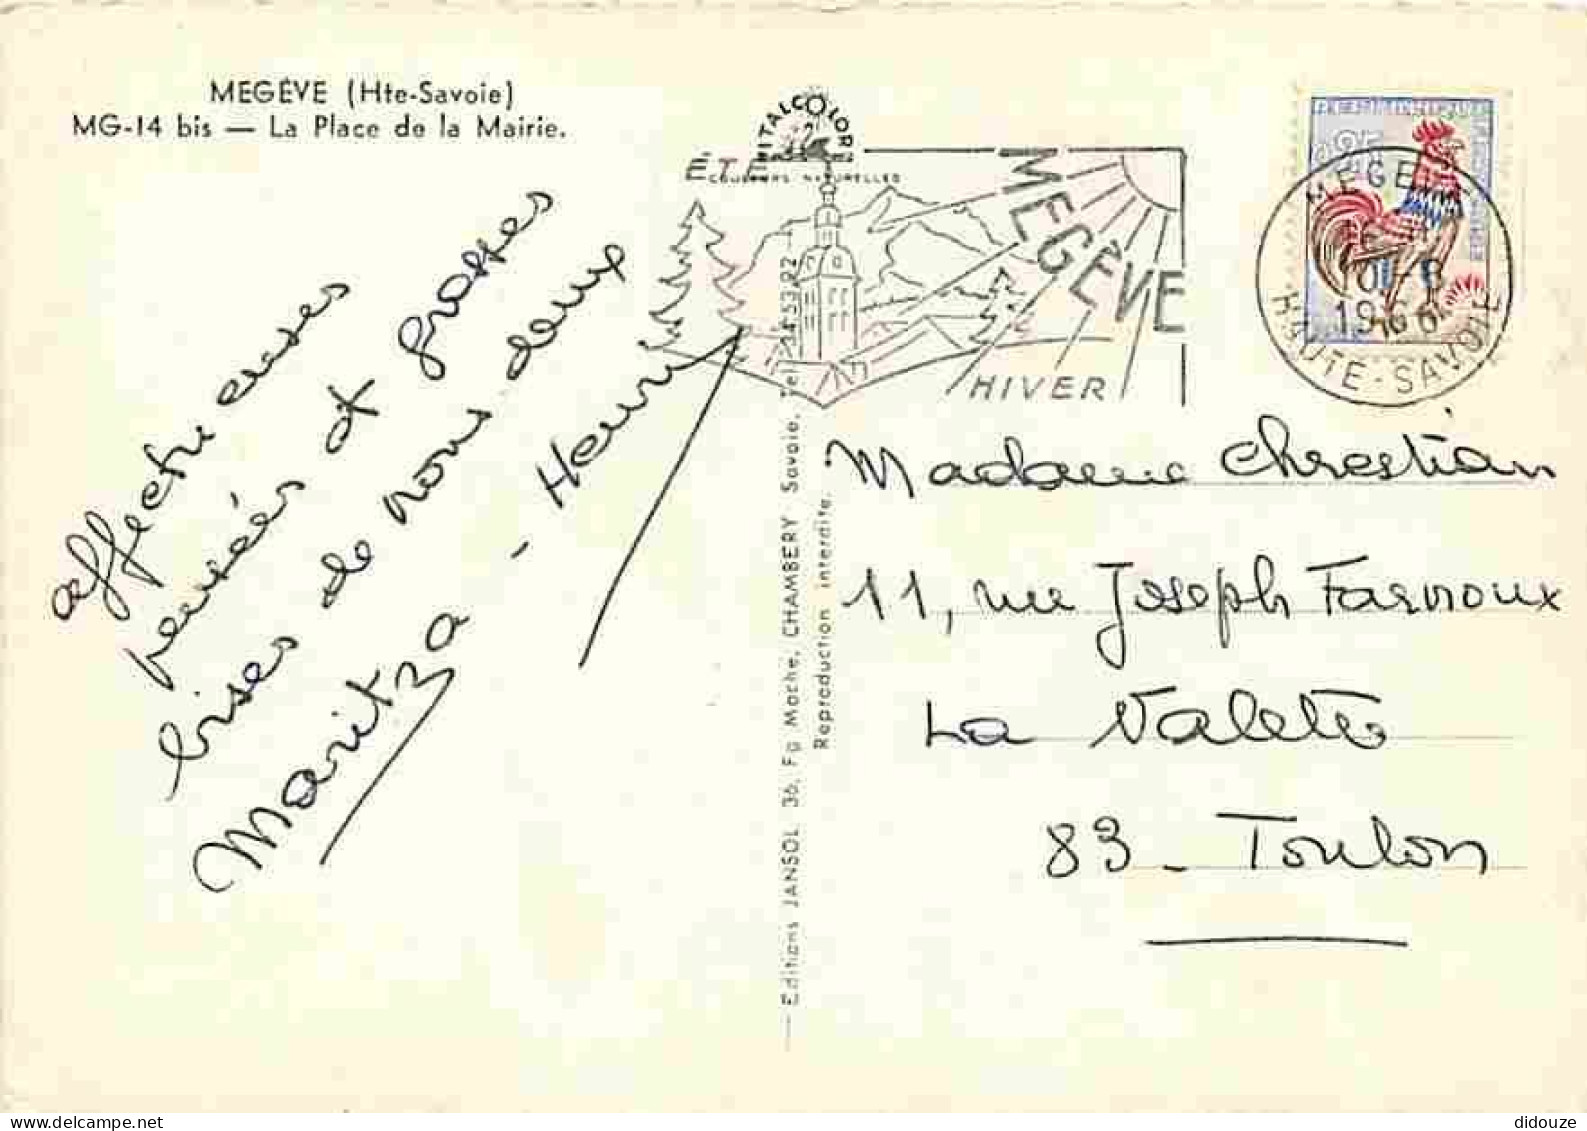 MEGÈVE (Hte-Savoie)
MG-14 bis — La Place de la Mairie.
affectueuses
pensées et grosses
bises de nous deux
Maritza - Henri
VITALCOLOR
COULEURS NATURELLES
ÉTÉ
MEGÈVE
HIVER
0,25
MEGEVE
1964
HAUTE-SAVOIE
Editions JANSOL, 36, Fg Mache, CHAMBERY Savoie. Tel. 34.53.92
Reproduction interdite.
Madame Chrestian
11, rue Joseph Farnoux
La Valette
83 - Toulon
didouze